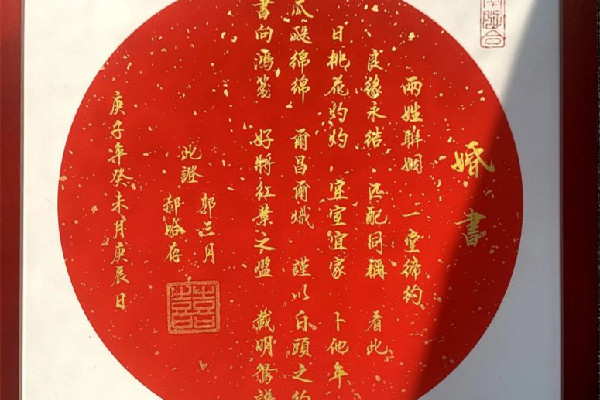 婚書
兩姓聯姻 一堂締約
良緣永結 匹配同稱 看此
日桃花灼灼 宜室宜家 卜他年
瓜瓞綿綿 爾昌爾熾 謹以白頭之約
書向鴻箋 好將紅葉之盟 載明鴛譜
此證
庚子年癸未月庚辰日
囍